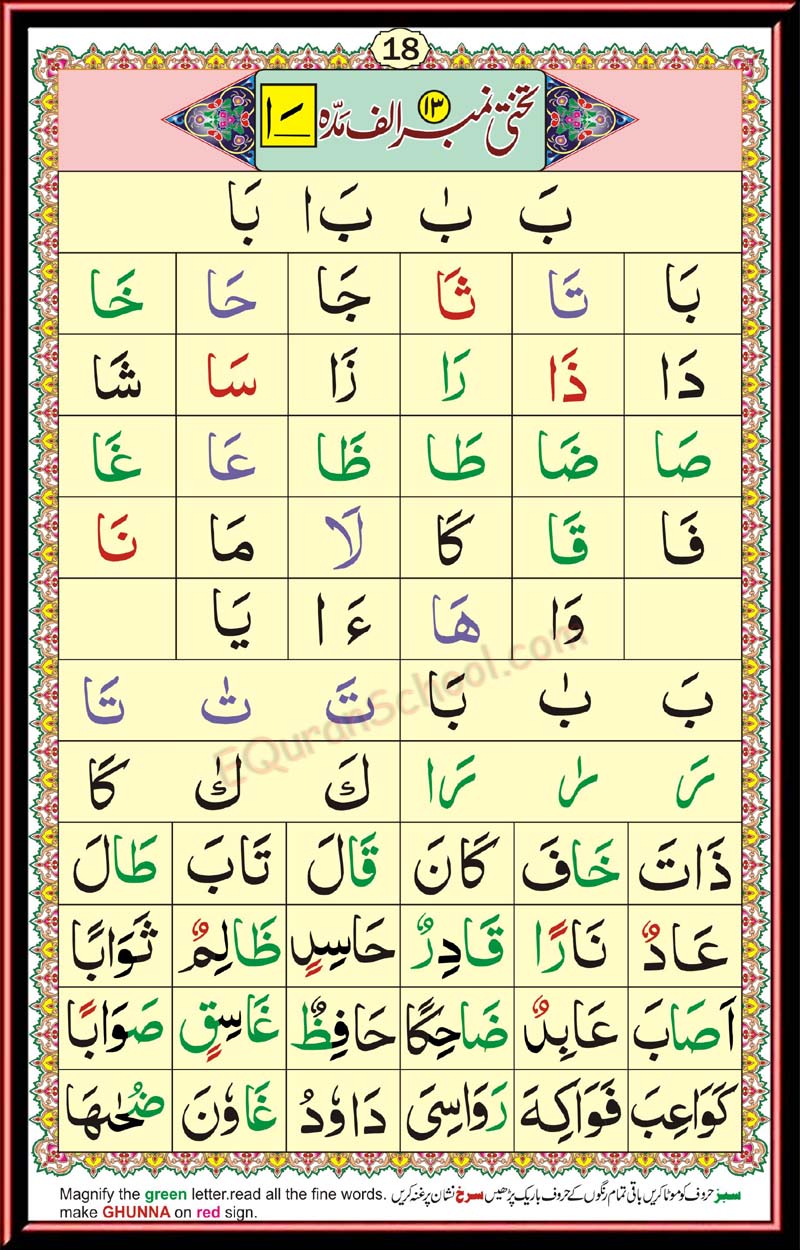 18
تختی نمبر ۱۳ الف مدّہ ـَا
بَ بٰ بَ ا بَا
بَا تَا ثَا جَا حَا خَا
دَا ذَا رَا زَا سَا شَا
صَا ضَا طَا ظَا عَا غَا
فَا قَا كَا لَا مَا نَا
وَا هَا ءَ ا يَا
بَ بٰ بَا تَ تٰ تَا
رَ رٰ رَا كَ كٰ كَا
ذَاتَ خَافَ كَانَ قَالَ تَابَ طَالَ
عَادٌ نَارًا قَادِرٌ حَاسِدٍ ظَالِمٌ ثَوَابًا
اَصَابَ عَابِدٌ ضَاحِكًا حَافِظٌ غَاسِقٍ صَوَابًا
كَوَاعِبَ فَوَاكِهَ رَوَاسِیَ دَاوٗدُ غَاوٗنَ ضُحٰىهَا
EQuranSchool.com
Magnify the green letter.read all the fine words. سبز حروف کو موٹا کریں باقی تمام رنگوں کے حروف باریک پڑھیں سرخ نشان پر غنہ کریں
make GHUNNA on red sign.